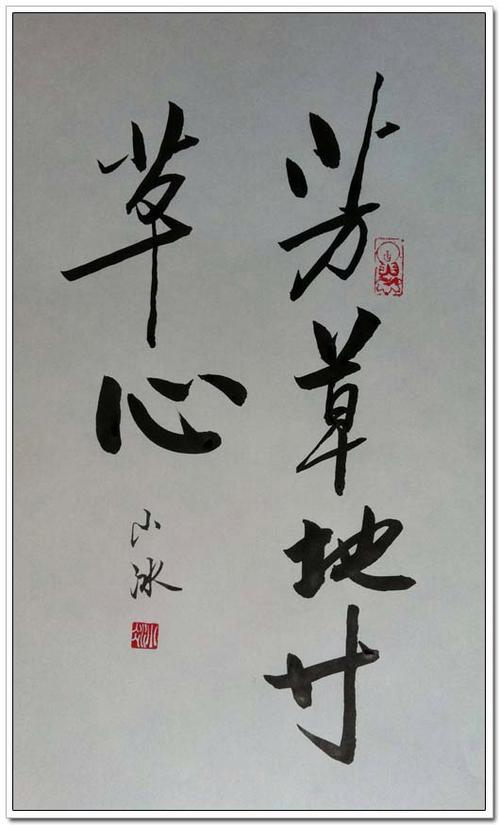 芳草地寸
草心
小冰